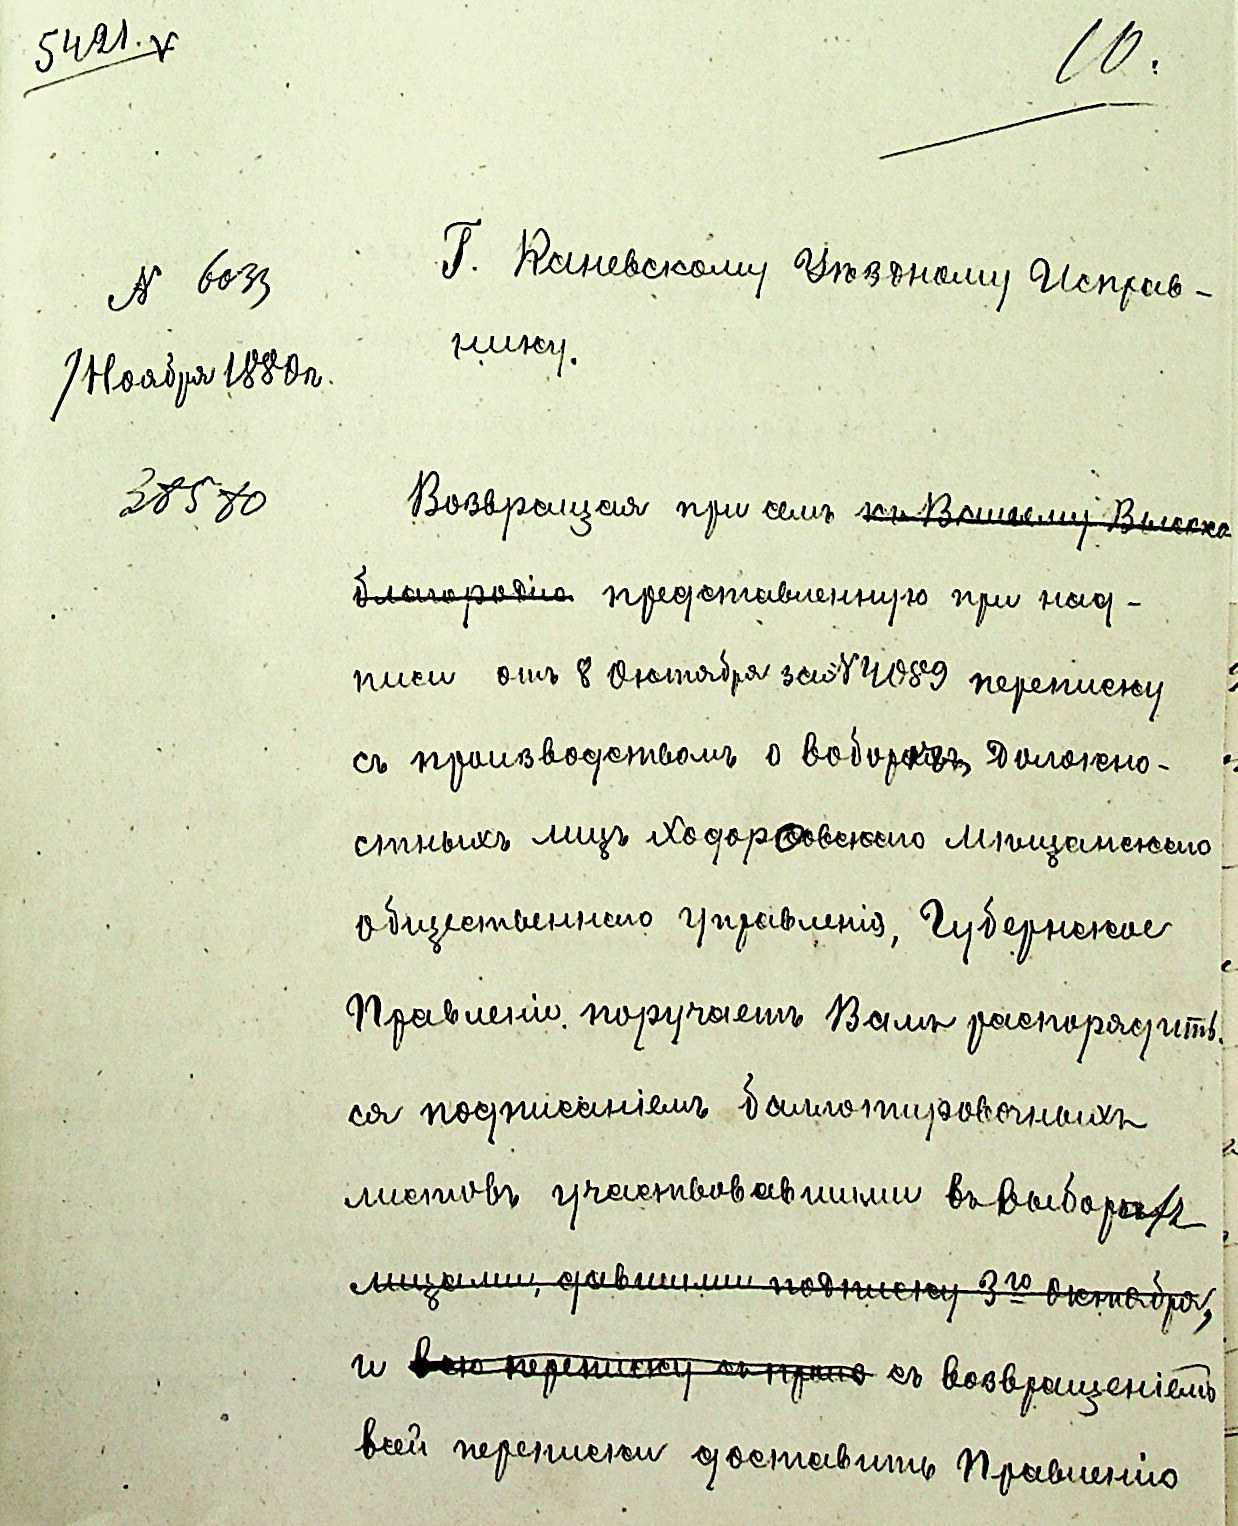 5421.
10.
Г. Каневскому Уѣздному Исправ-
нику.
N 6033
7 Ноября 1880 г.
38580
Возвращая при семъ къ Вашему Высоко
благородію представленную при над-
писи отъ 8 Октября за N 4089 переписку
съ производствомъ о выборахъ должно-
стныхъ лицъ Ходоровскаго мѣщанскаго
общественнаго управленія, Губернское
Правленіе поручаетъ Вамъ распорядить-
ся подписаніемъ баллотировочныхъ
листовъ участвовавшими въ выборахъ
лицами, давшими подписку 3го октября,
и всю переписку съ произ съ возвращеніемъ
всей переписки доставить Правленію